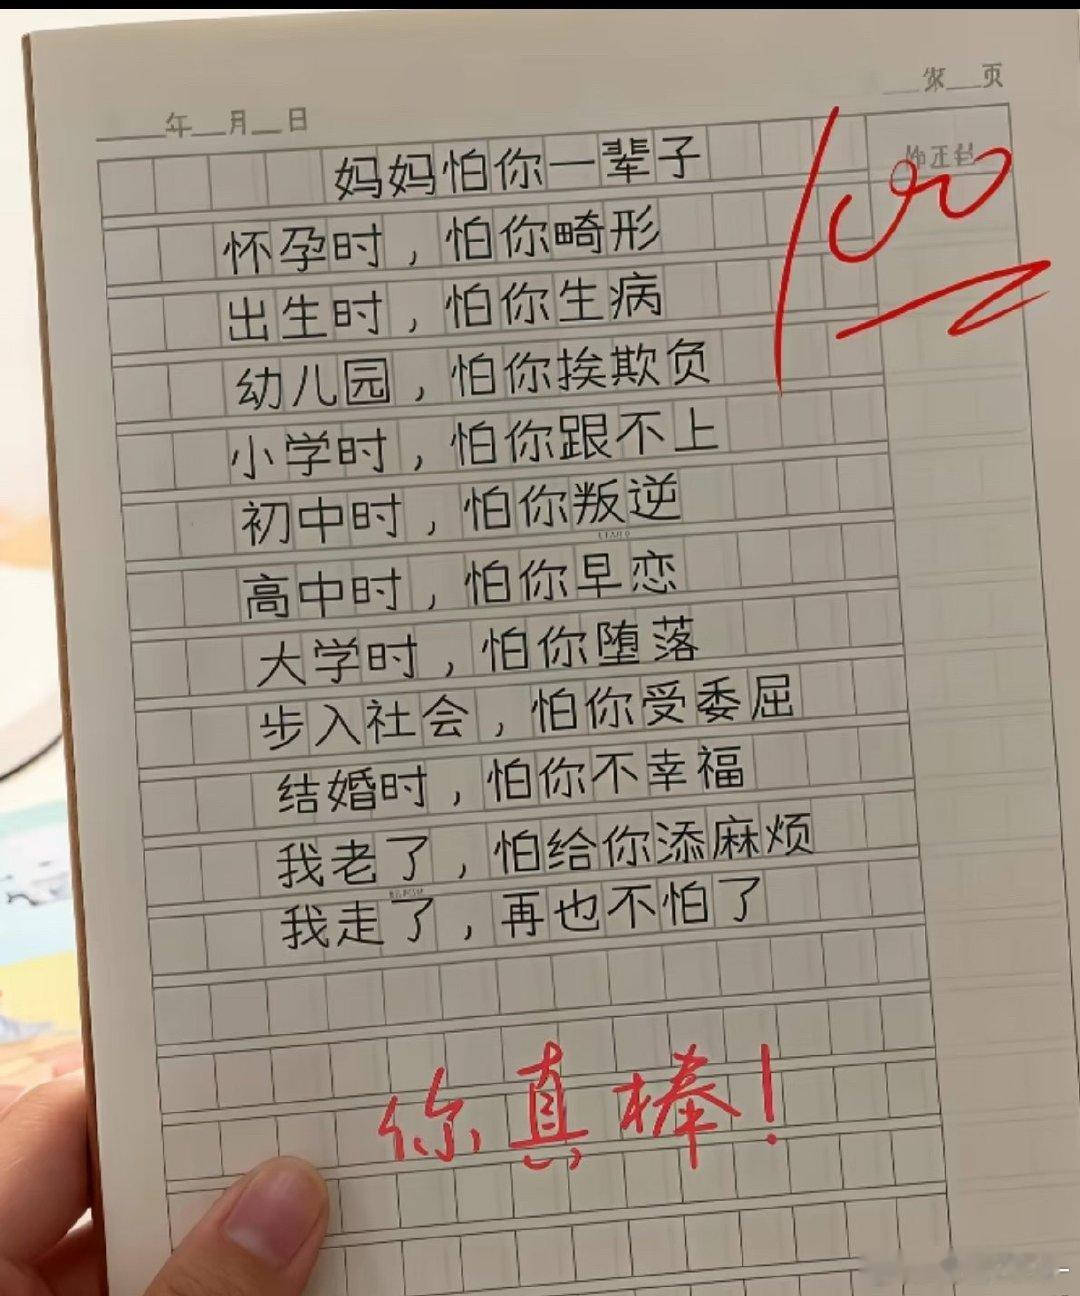 第__页
____年__月__日
100
妈妈怕你一辈子
怀孕时，怕你畸形
出生时，怕你生病
幼儿园，怕你挨欺负
小学时，怕你跟不上
初中时，怕你叛逆
高中时，怕你早恋
大学时，怕你堕落
步入社会，怕你受委屈
结婚时，怕你不幸福
我老了，怕给你添麻烦
我走了，再也不怕了
你真棒！